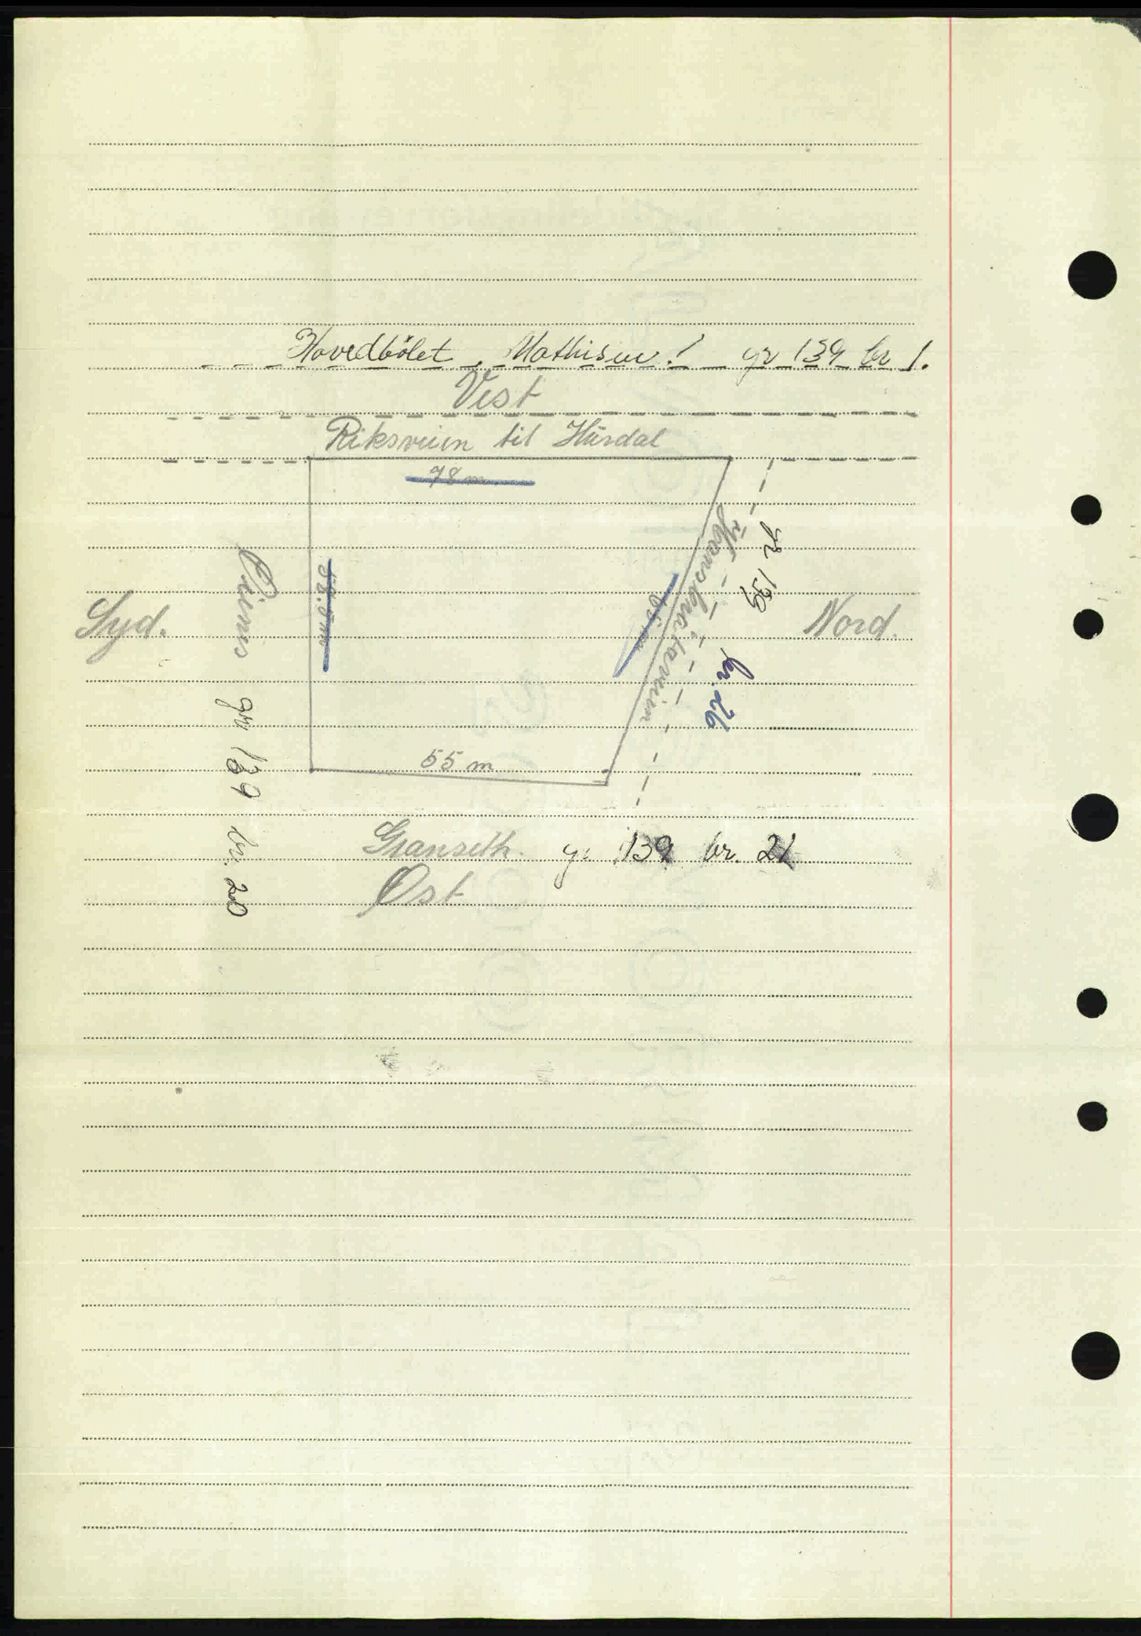 Hovedbölet Mathisen! gr 139 br 1.
Vest
Riksveien til Hurdal
78 m
58.5 m
gr 139 br. 26
Syd.
Nord.
gr 139 br. 20
55 m
Granseth. gr 139 br. 21
Øst